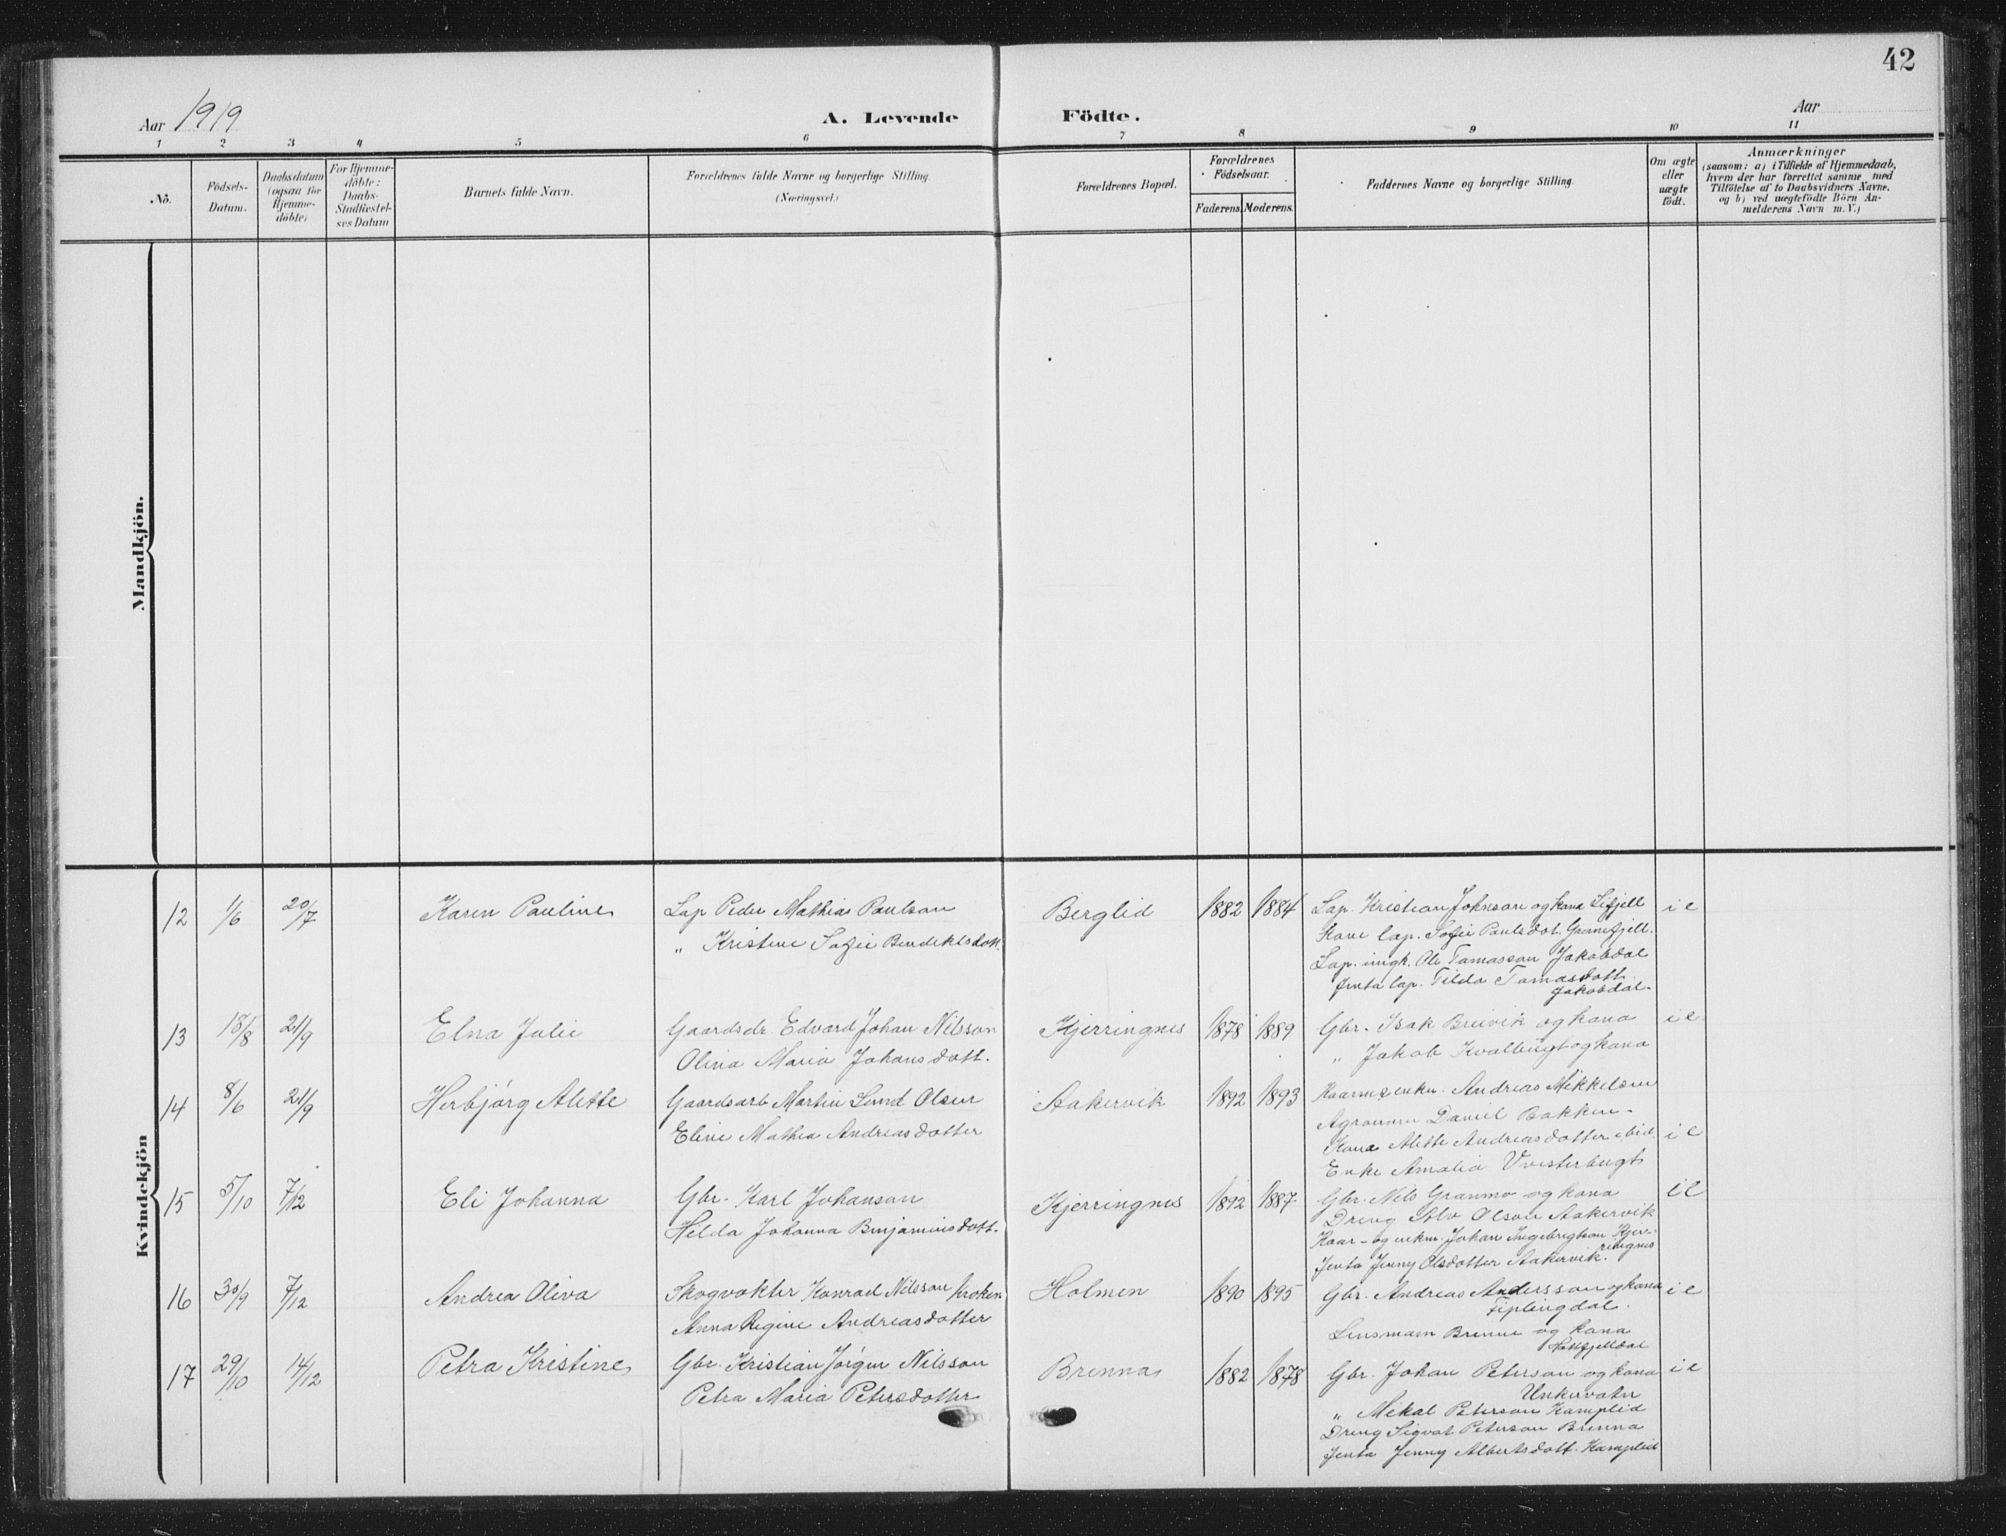 42
Aar 1919
A. Levende Födte.
Aar
1 2 3 4 5 6 7 8 9 10 11
No.
Födsels-
Datum.
Daabsdatum
(ogsaa for
Hjemme-
döbte)
For Hjemme-
döbte:
Daabs-
Stadfæstel-
ses Datum
Barnets fulde Navn.
Forældrenes fulde Navne og borgerlige Stilling.
(Næringsvei.)
Forældrenes Bopæl.
Forældrenes
Födselsaar.
Faderens. Moderens.
Faddernes Navne og borgerlige Stilling.
Om ægte
eller
uægte
födt.
Anmærkninger
(saasom: a) i Tilfælde af Hjemmedaab,
hvem der har forrettet samme med
Tilföielse af to Daabsvidners Navne.
og b) ved uægtefödte Börn An-
melderens Navn m.V.)
Mandkjön.
Kvindekjön
12 1/6 20/7 Karen Pauline
Lap Peder Mathias Paulson
" Kristine Sofie Bendiktsdott.
Berglid 1882 1884
Lap. Kristian Johnson og kona
Kone lap. Sofie Paulsdot. Granefjell.
Lap. ungk. Ole Tomasson Jakobdal
Jenta lap. Tilda Tomasdott
Jakobdal.
i e
13 18/8 21/9 Elna Julie
Gaardsdr. Edvard Johan Nilsson
Olina Maria Johansdott.
Kjerringnes 1878 1889
Gbr. Isak Breivik og kona
" Jakob Kvalbugt og kona
i e
14 8/6 21/9 Herbjörg Alette
Gaardsarb Martin Lund Olsen
Eline Mathea Andreasdotter
Aakervik 1892 1893
Andreas Mikkelsen
Agronom Daniel Bakken.
Kona Alette Andreasdotter ibid.
Enke Amalia Vvesterbugt
i e
15 5/10 7/12 Eli Johanna
Gbr. Karl Johanson
Helda Johanna Binjaminsdott.
Kjerringnes 1892 1887
Gbr. Nils Granmo og kona
Dreng Olson Aakervik
Kaar- og enkm. Johan Ingebrigtson Kjer-
ringnes
Jenta Jenny Olsdotter Aakervik.
i e
16 30/9 7/12 Andrea Oliva
Skogvokter Konrad Nilsson Kroken
Anna Regine Andreasdotter
Holmen 1890 1895
Gbr. Andreas Andersson og kona
Fiplingdal.
Lensmann Brenne og kona
Hatfjelldal
i e
17 29/10 14/12 Petra Kristine
Gbr. Kristian Jörgen Nilsson
Petra Maria Petersdotter
Brenna 1882 1878
Gbr. Johan Peterson og kona
Unkervatn
" Mikal Peterson Kamplid
Dreng Sigvat Peterson Brenna
Jenta Jenny Albertsdott. Kamplid
i e